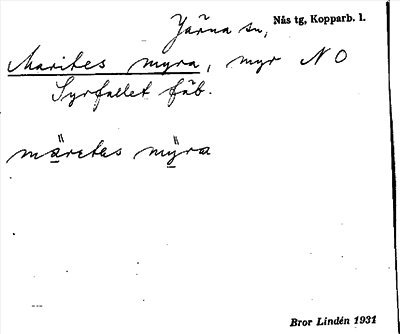 Järna sn, Nås tg, Kopparb. l.
Marites myra, myr NO
Syrfallet fäb.
märetas mÿra
Bror Lindén 1931